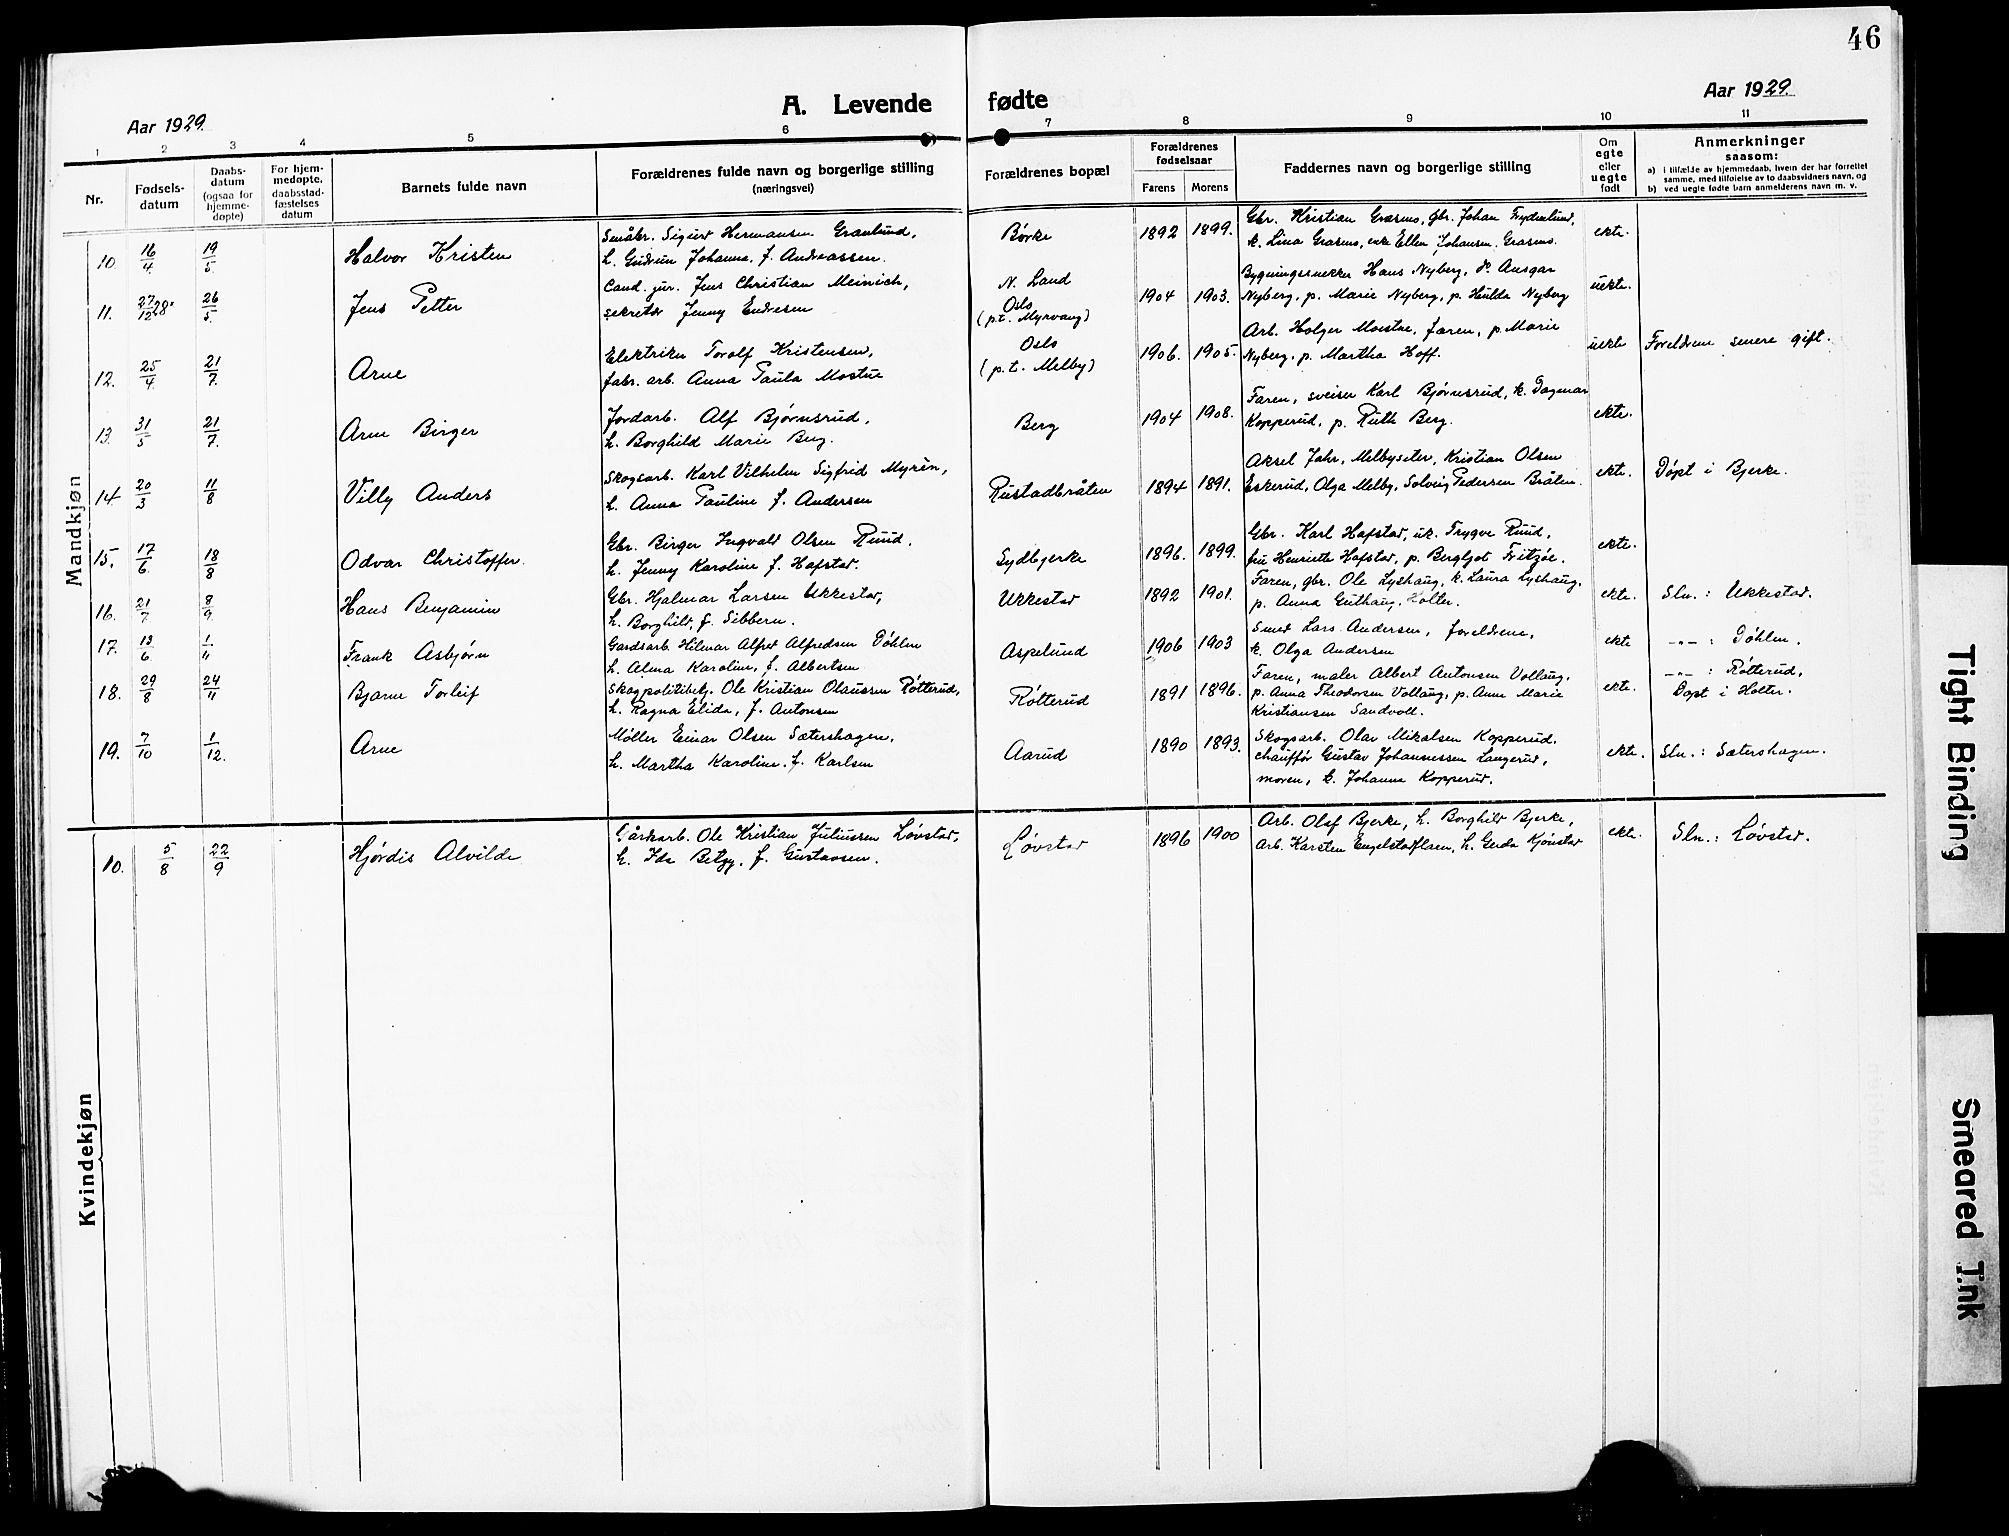 46
Aar 1929.
A. Levende fødte
Aar 1929.
1 2 3 4 5 6 7 8 9 10 11
Nr.
Fødsels-
datum
Daabs-
datum
(ogsaa for
hjemme-
døpte)
For hjem-
medøpte.
daabsstad-
fæstelses
datum
Barnets fulde navn
Forældrenes fulde navn og borgerlige stilling
(næringsvei)
Forældrenes bopæl
Forældrenes
fødselsaar
Farens Morens
Faddernes navn og borgerlige stilling
Om
egte
eller
uegte
født
Anmerkninger
saasom:
a) i tilfælde av hjemmedaab, hvem der har forrettet
samme, med tilføielse av to daabsvidners navn, og
b) ved uegte fødte barn anmelderens navn m. v.
Mandkjøn
10. 16/4 19/5 Halvor Kristen
Småbr. Sigurd Hermansen Granlund,
h. Gudrun Johanne, f. Andreassen.
Børke 1892 1899.
Gbr. Kristian Grasmo, gbr. Johan Frydenlund,
k. Lina Grasmo, enke Ellen Johansen Grasmo.
ekte.
11. 27/12 28. 26/5 Jens Petter
Cand. jur. Jens Christian Meinich,
sekretær Jenny Endresen
N. Land
Oslo
(p.t. Myrvang)
1904 1903.
Bygningssnekker Hans Nyberg, Ansgar
Nyberg, p. Marie Nyberg, p. Hulda Nyberg
uekte.
12. 25/4 21/7. Arne
Elektriker Torolf Kristensen,
fabr. arb. Anna Paula Mostue
Oslo
(p.t. Melby)
1906. 1905.
Arb. Holger Mostue, faren, p. Marie
Nyberg, p. Martha Hoff.
uekte Foreldrene senere gift.
13. 31/5 21/7. Arne Birger
Jordarb. Alf Bjørnsrud,
h. Borghild Marie Berg.
Berg 1904 1908.
Faren, sveiser Karl Bjørnsrud, k. Dagmar
Kopperud, p. Ruth Berg.
ekte.
14. 20/3 11/8 Villy Anders
Skogsarb. Karl Vilhelm Sigfrid Myrén,
h. Anna Pauline f. Andersen
Rustadbråten 1894 1891.
Aksel Jahr, Melbyseter, Kristian Olsen
Eskerud, Olga Melby, Solveig Pedersen Bråten.
ekte. Døpt i Bjerke.
15. 17/6. 18/8 Odvar Christoffer.
Gbr. Birger Ingvald Olsen Ruud.
h. Jenny Karoline f. Hafstad.
Sydbjerke 1896. 1899.
Gbr. Karl Hafstad, uk. Trygve Ruud,
fru Henriette Hafstad, p. Bergljot Fritzøe.
ekte.
16. 21/7. 8/9. Hans Benjamin
Gbr. Hjalmar Larsen Ukkestad,
h. Borghild, f. Sibbern.
Ukkestad 1892 1901.
Faren, gbr. Ole Lyshaug, k. Laura Lyshaug,
p. Anna Guthaug, Holter.
ekte. Sln.: Ukkestad.
17. 13/6 1/11 Frank Asbjørn
Gardsarb. Hilmar Alfred Alfredsen Døhlen
h. Alma Karoline, f. Albertsen
Aspelund 1906 1903
Smed Lars Andersen, foreldrene,
k. Olga Andersen
ekte -"- : Døhlen.
18. 29/8 24/11 Bjarne Torleif
Skogpolitibetj. Ole Kristian Olaussen Røtterud,
h. Ragna Elida, f. Antonsen
Røtterud 1891 1896.
Faren, maler Albert Antonsen Vollaug,
p. Anna Theodorsen Vollaug, p. Anne Marie
Kristiansen Sandvoll.
ekte. -"- : Røtterud,
Døpt i Holter.
19. 7/10 1/12. Arne
Møller Einar Olsen Sætershagen,
h. Martha Karoline f. Karlsen
Aarud 1890 1893.
Skogsarb. Olav Mikalsen Kopperud.
chauffør Gustav Johannessen Langerud,
moren, k. Johanne Kopperud.
ekte. Sln.: Sætershagen.
Kvindekjøn
10. 5/8 22/9 Hjørdis Alvilde
Gårdsarb. Ole Kristian Juliussen Løvstad,
h. Ida Betzy, f. Gustavsen.
Løvstad 1896 1900
Arb. Olaf Bjerke, h. Borghild Bjerke,
Arb. Karsten Engelstad, h. Gerda Kjønstad
ekte. Sln.: Løvstad.
Tight Binding
Smeared Ink